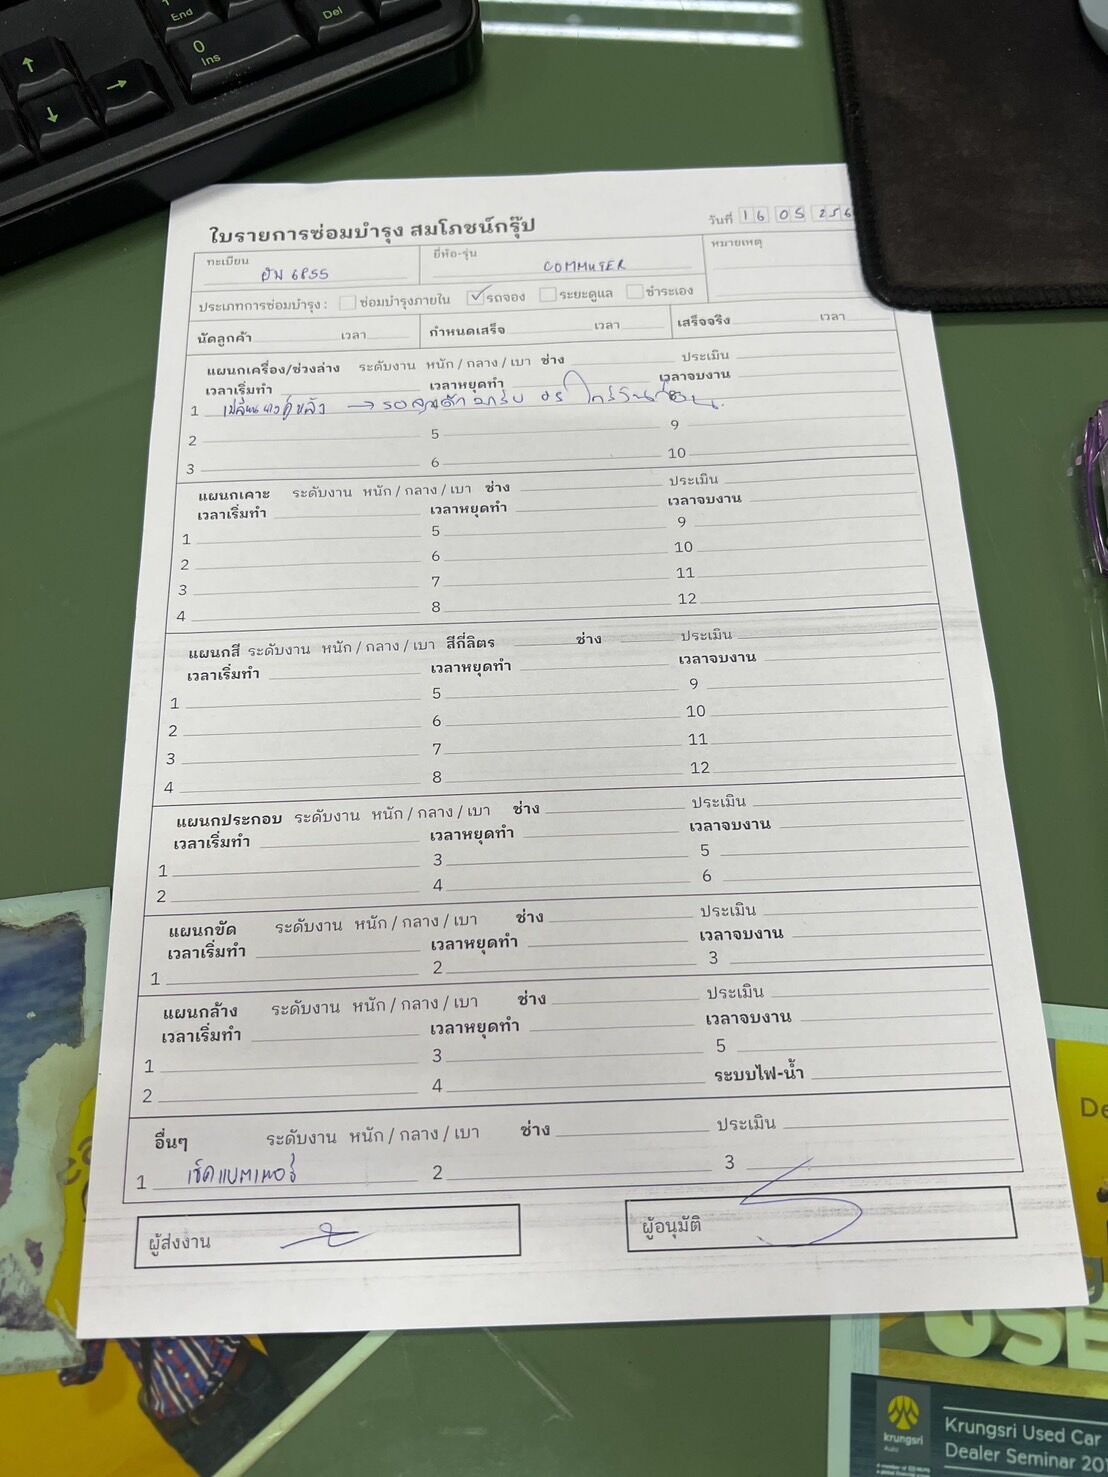 End
Del
0
Ins
ใบรายการซ่อมบำรุง สมโภชน์กรุ๊ป
วันที่ 16 05 256
ทะเบียน ฮน 6855
ยี่ห้อ-รุ่น COMMUTER
หมายเหตุ
ประเภทการซ่อมบำรุง : ซ่อมบำรุงภายใน รถจอง ระยะดูแล ชำระเอง
นัดลูกค้า เวลา กำหนดเสร็จ เวลา เสร็จจริง เวลา
แผนกเครื่อง/ช่วงล่าง ระดับงาน หนัก / กลาง / เบา ช่าง ประเมิน
เวลาเริ่มทำ เวลาหยุดทำ เวลาจบงาน
1 เปลี่ยนยางคู่หลัง → รอลูกค้า
2 5 9
3 6 10
แผนกเคาะ ระดับงาน หนัก / กลาง / เบา ช่าง ประเมิน
เวลาเริ่มทำ เวลาหยุดทำ เวลาจบงาน
1 5 9
2 6 10
3 7 11
4 8 12
แผนกสี ระดับงาน หนัก / กลาง / เบา สีกี่ลิตร ช่าง ประเมิน
เวลาเริ่มทำ เวลาหยุดทำ เวลาจบงาน
1 5 9
2 6 10
3 7 11
4 8 12
แผนกประกอบ ระดับงาน หนัก / กลาง / เบา ช่าง ประเมิน
เวลาเริ่มทำ เวลาหยุดทำ เวลาจบงาน
1 3 5
2 4 6
แผนกขัด ระดับงาน หนัก / กลาง / เบา ช่าง ประเมิน
เวลาเริ่มทำ เวลาหยุดทำ เวลาจบงาน
1 2 3
แผนกล้าง ระดับงาน หนัก / กลาง / เบา ช่าง ประเมิน
เวลาเริ่มทำ เวลาหยุดทำ เวลาจบงาน
1 3 5
2 4 ระบบไฟ-น้ำ
อื่นๆ ระดับงาน หนัก / กลาง / เบา ช่าง ประเมิน
1 เช็คแบตเตอรี่ 2 3
ผู้ส่งงาน
ผู้อนุมัติ
De
USE
krungsri
Auto
Krungsri Used Car
Dealer Seminar 201